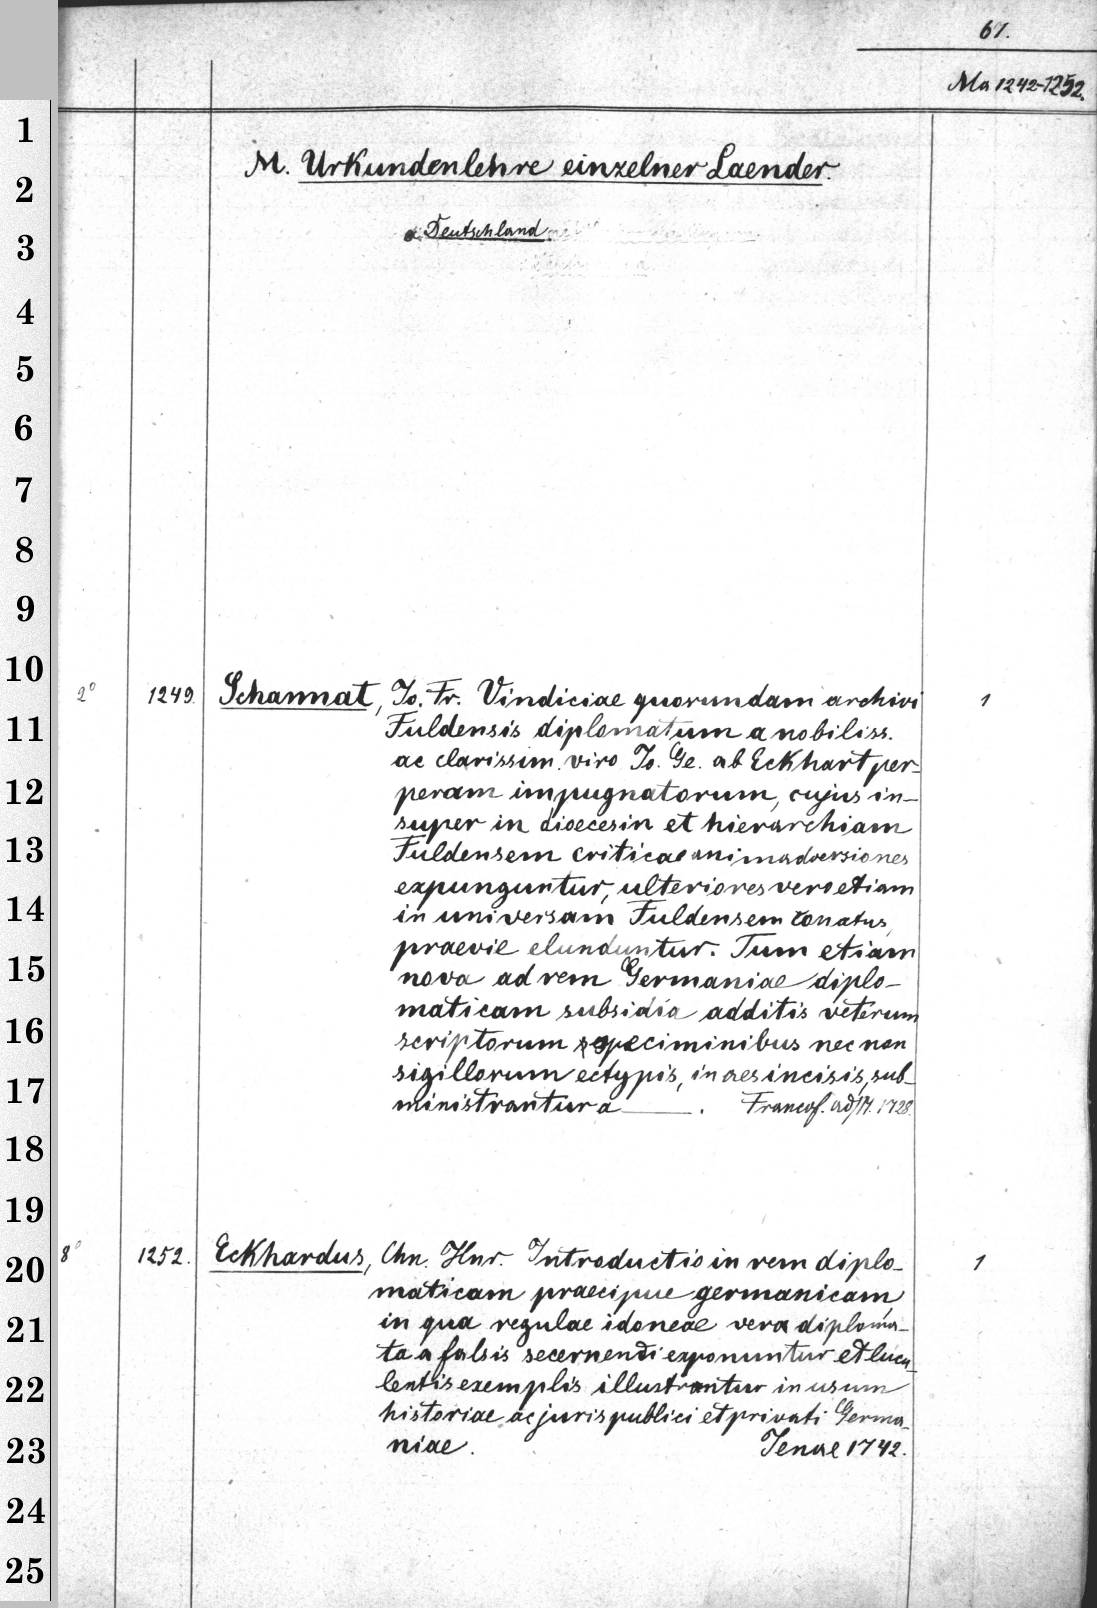 67.
Ma 1242-1252.
M. Urkundenlehre einzelner Laender.
a Deutschland
2° 1249. Schannat, Jo. Fr. Vindiciae quorundam archivi 1
Fuldensis diplomatum a nobiliss.
ac clarissim. viro Jo. Ge. ab Eckhart per-
peram impugnatorum, cujus in-
super in dioecesin et hierarchiam
Fuldensem criticae animadversiones
expunguntur, ulteriores vero etiam
in universam Fuldensem conatus,
praevie elunduntur. Tum etiam
nova ad rem Germaniae diplo-
maticam subsidia additis veterum
scriptorum speciminibus nec non
sigillorum ectypis, in aes incisis, sub-
ministrantur a ——. Francof. ad/M. 1728.
8° 1252. Eckhardus, Chn. Hnr. Introductio in rem diplo- 1
maticam praecipue germanicam
in qua regulae idoneae vera diploma-
ta a falsis secernendi exponuntur et lucu-
lentis exemplis illustrantur in usum
historiae ac juris publici et privati Germa-
niae. Jenae 1742.
1
2
3
4
5
6
7
8
9
10
11
12
13
14
15
16
17
18
19
20
21
22
23
24
25